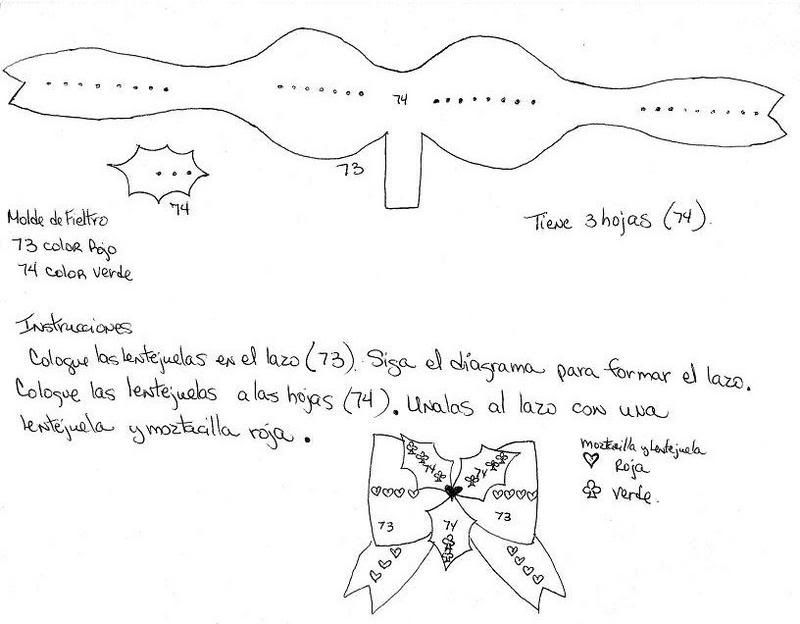 74
73
74
Molde de Fieltro
73 color Rojo
74 color verde
Tiene 3 hojas (74).
Instrucciones
Coloque las lentejuelas en el lazo (73). Siga el diagrama para formar el lazo.
Coloque las lentejuelas a las hojas (74). Unalas al lazo con una
lentejuela y moztacilla roja.
moztacilla y lentejuela
Roja
verde.
74
74
73
74
73